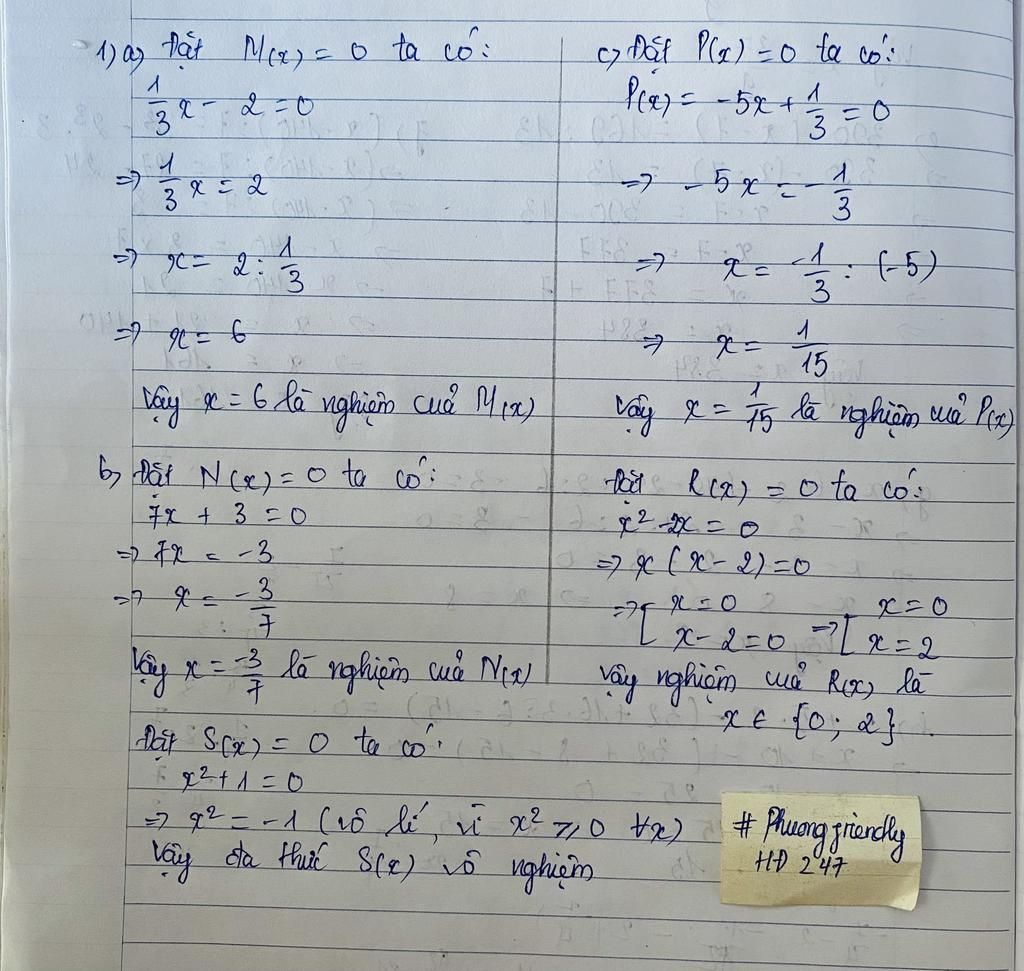 1) a) Đặt M(x) = 0 ta có:
1/3 x - 2 = 0
=> 1/3 x = 2
=> x = 2 : 1/3
=> x = 6
Vậy x = 6 là nghiệm của M(x)
b) Đặt N(x) = 0 ta có:
7x + 3 = 0
=> 7x = -3
=> x = -3/7
Vậy x = -3/7 là nghiệm của N(x)
c) Đặt P(x) = 0 ta có:
P(x) = -5x + 1/3 = 0
=> -5x = -1/3
=> x = -1/3 : (-5)
=> x = 1/15
Vậy x = 1/15 là nghiệm của P(x)
Đặt R(x) = 0 ta có:
x² - 2x = 0
=> x(x - 2) = 0
=> [ x = 0 => [ x = 0
x - 2 = 0 x = 2
Vậy nghiệm của R(x) là
x ∈ {0; 2}
Đặt S(x) = 0 ta có:
x² + 1 = 0
=> x² = -1 (vô lí, vì x² ⩾ 0 ∀x)
Vậy đa thức S(x) vô nghiệm
# Phuongfriendly
HĐ 247